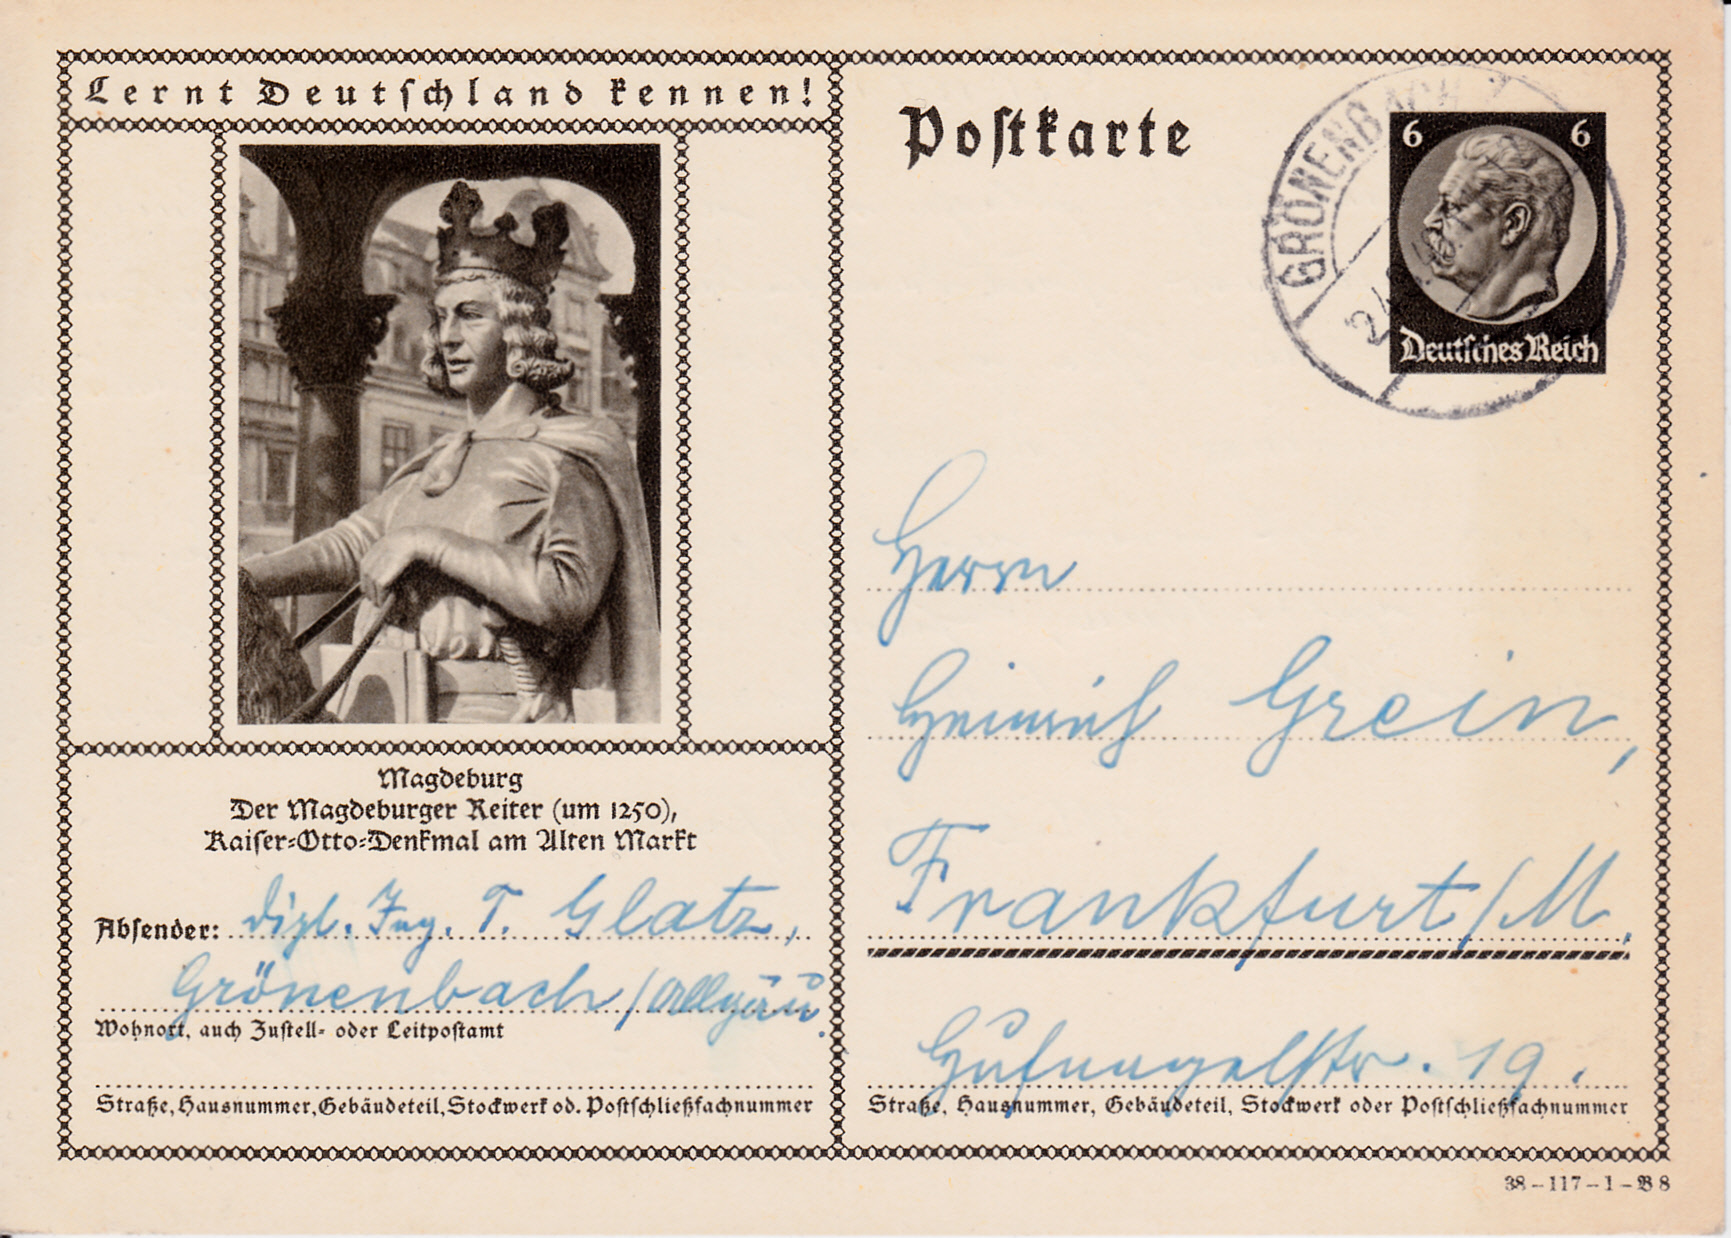 Lernt Deutschland kennen!
Postkarte
GRÖNENBACH
6 6
Deutsches Reich
Magdeburg
Der Magdeburger Reiter (um 1250),
Kaiser-Otto-Denkmal am Alten Markt
Absender: Dipl. Ing. T. Glatz,
Grönenbach / Allgäu.
Wohnort, auch Zustell- oder Leitpostamt
Straße, Hausnummer, Gebäudeteil, Stockwerk od. Postschließfachnummer
Herrn
Heinrich Grein,
Frankfurt / M.
Hufnagelstr. 19.
Straße, Hausnummer, Gebäudeteil, Stockwerk oder Postschließfachnummer
38-117-1-B8